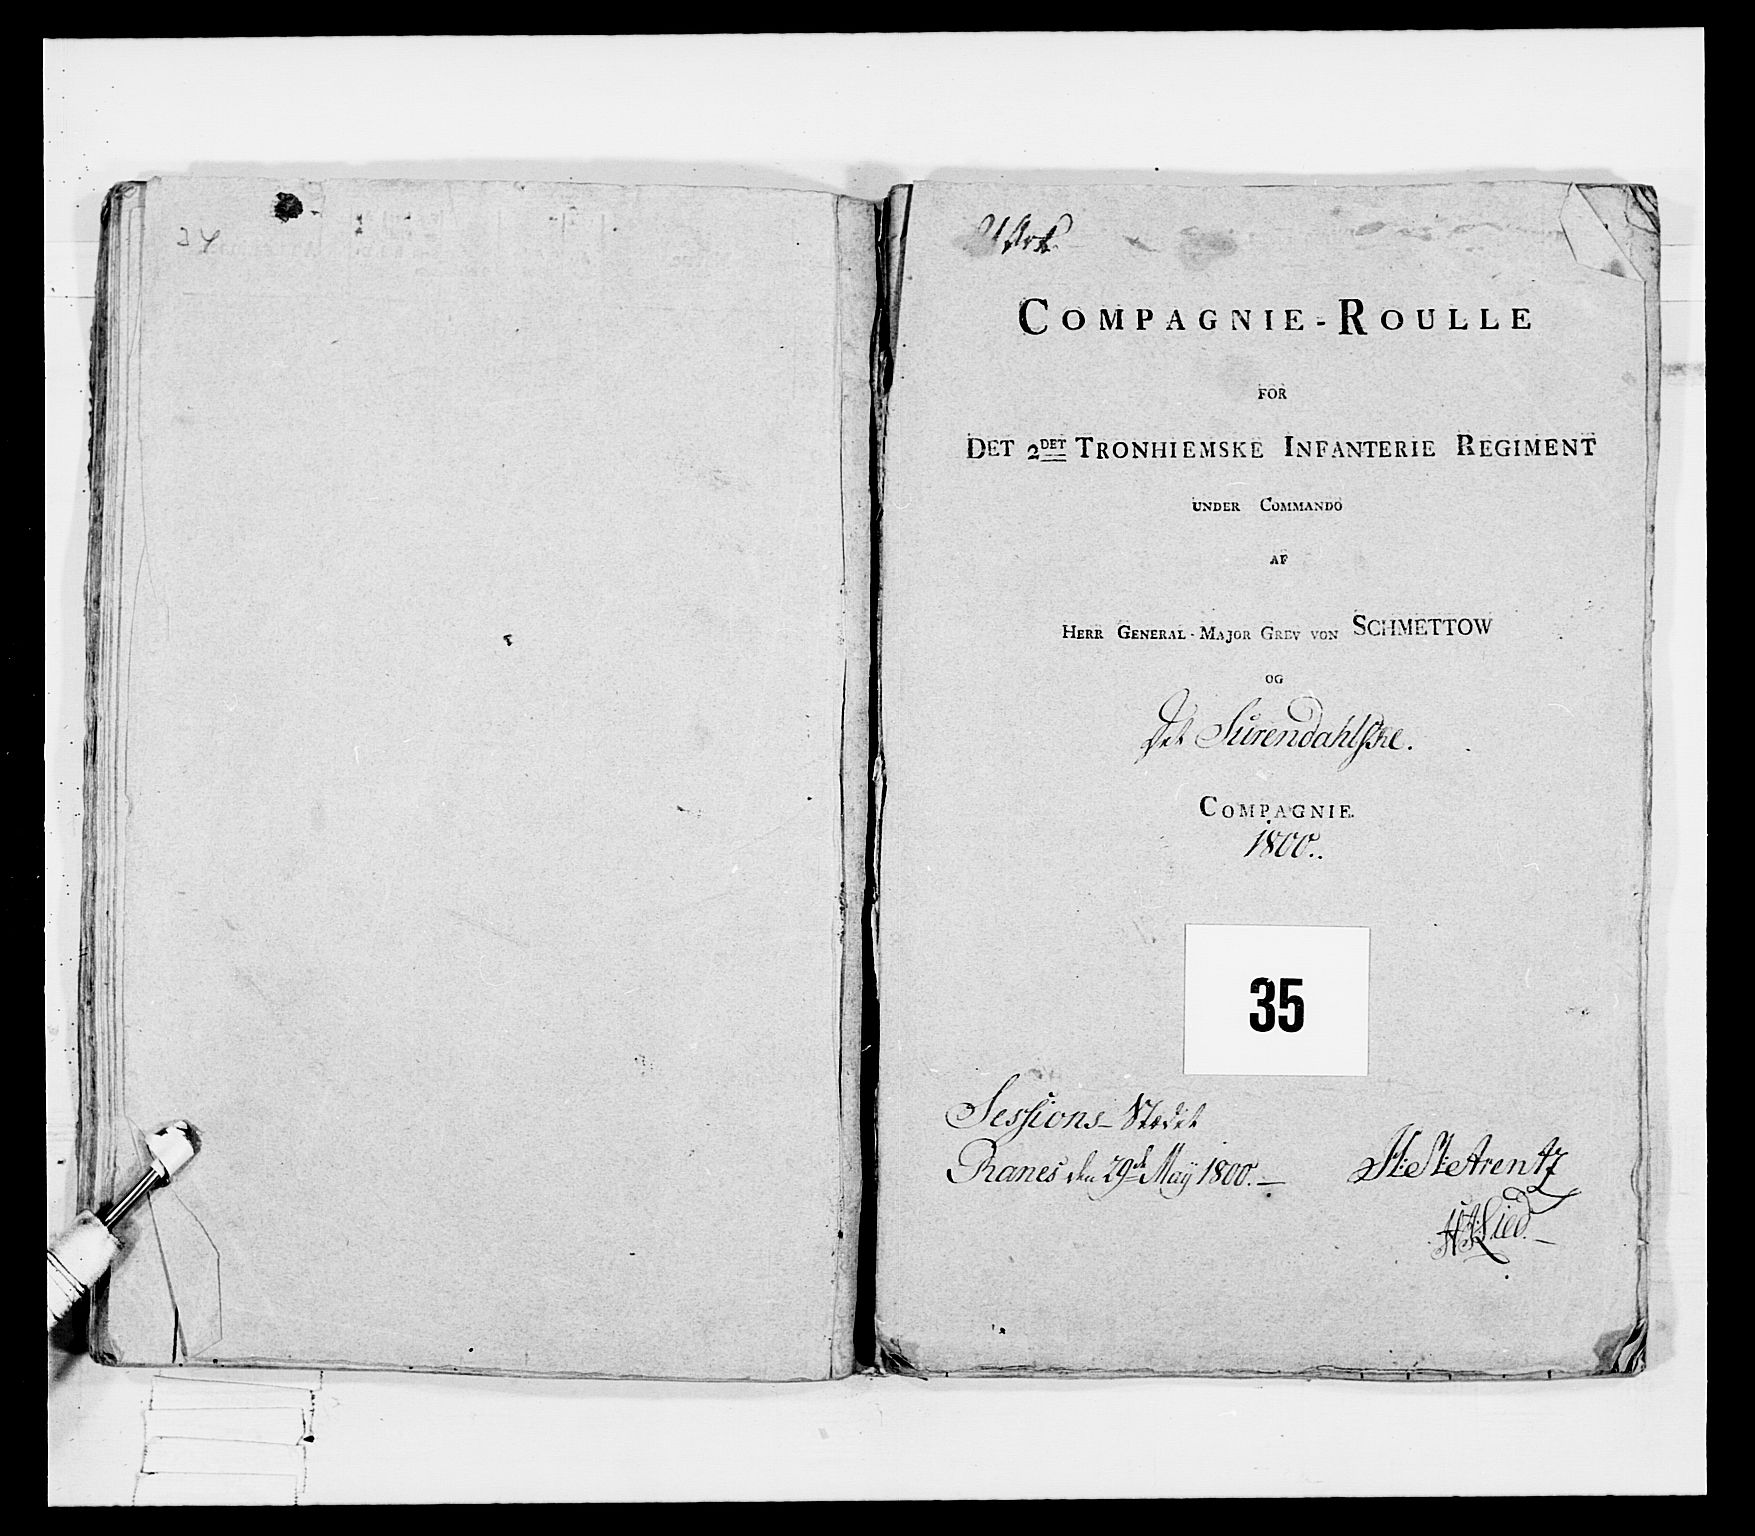 24
COMPAGNIE-ROULLE
FOR
DET 2DET TRONHIEMSKE INFANTERIE REGIMENT
UNDER COMMANDO
AF
HERR GENERAL-MAJOR GREV VON SCHMETTOW
OG
Det Surendahlske.
COMPAGNIE.
1800..
35
Sessions-Stædet
Ranes den 29de Maÿ 1800.—
Arentz